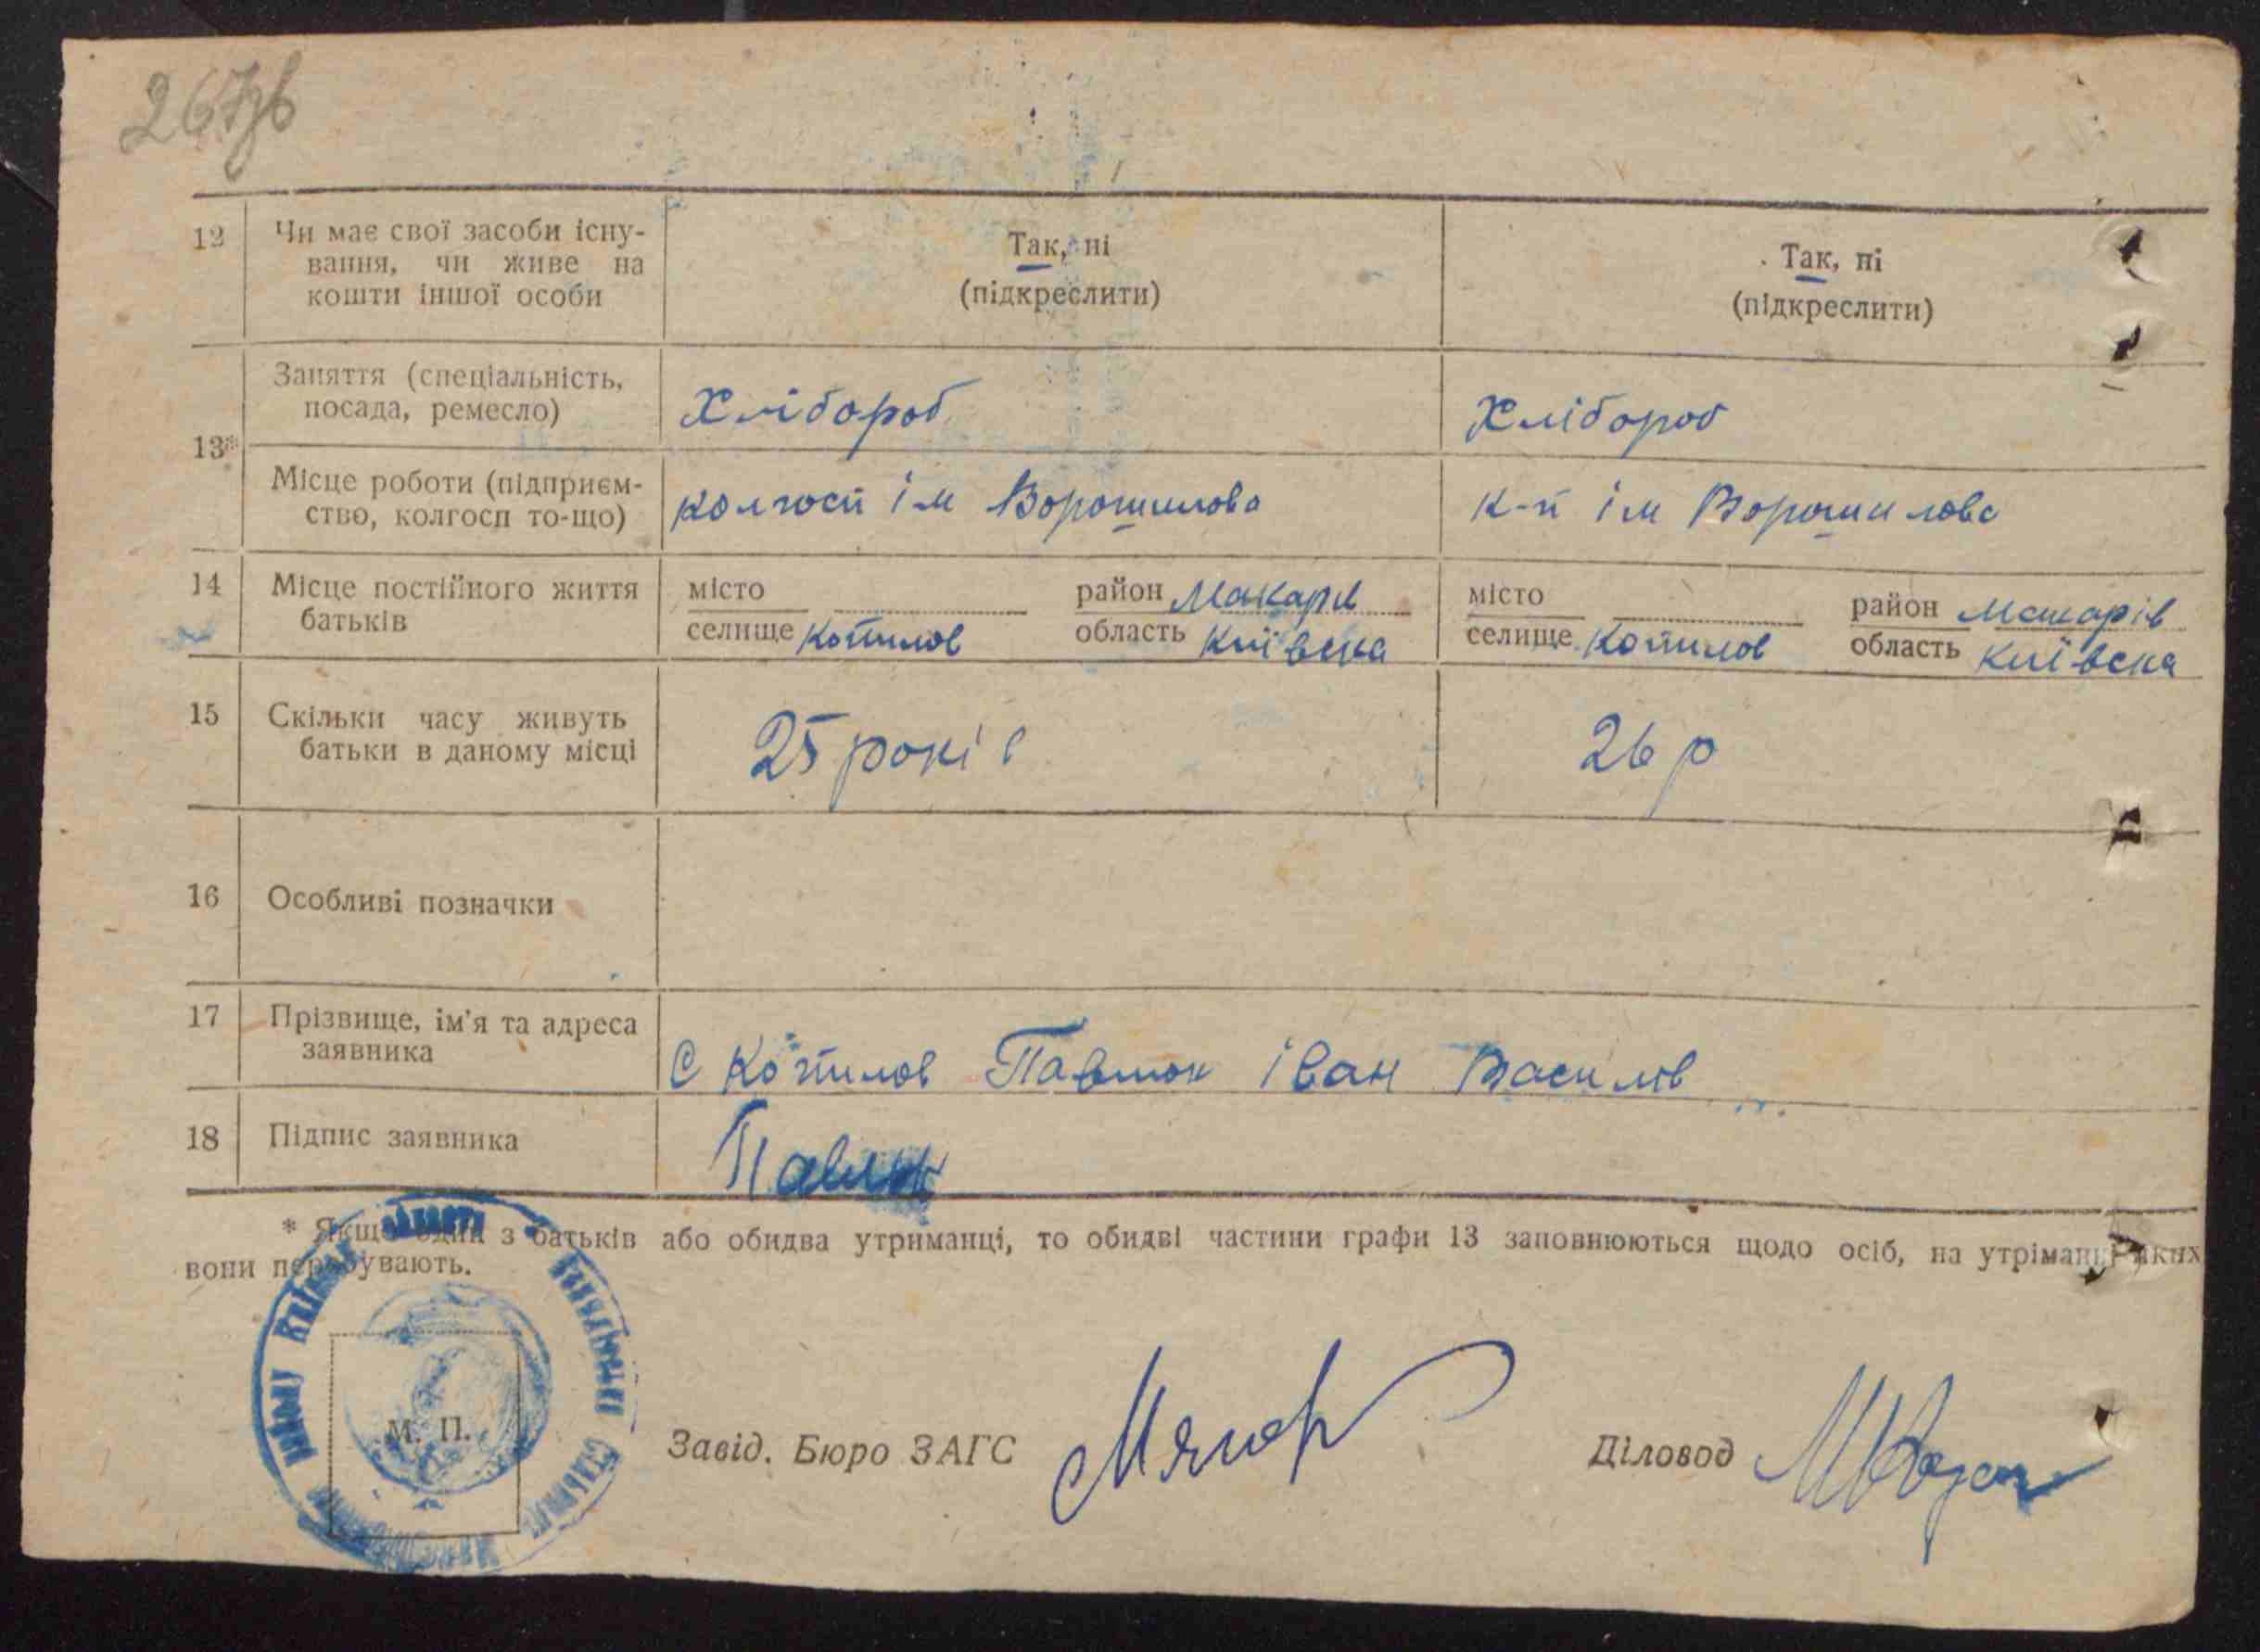 267зв
12 Чи має свої засоби існу- Так, ні . Так, ні
вання, чи живе на (підкреслити) (підкреслити)
кошти іншої особи
13* Заняття (спеціальність, Хлібороб Хлібороб
посада, ремесло)
Місце роботи (підприєм- колгосп ім Ворошилова к-п ім Ворошилова
ство, колгосп то-що)
14 Місце постійного життя місто район Макарів місто район Макарів
батьків селище Копилов область Київска селище Копилов область Київска
15 Скільки часу живуть 25 років 26 р
батьки в даному місці
16 Особливі позначки
17 Прізвище, ім'я та адреса
заявника С Копилов Павлюк Іван Василів
18 Підпис заявника Павлюк
* Якщо один з батьків або обидва утриманці, то обидві частини графи 13 заповнюються щодо осіб, на утріманні яких
вони перебувають.
М. П.
Завід. Бюро ЗАГС Діловод